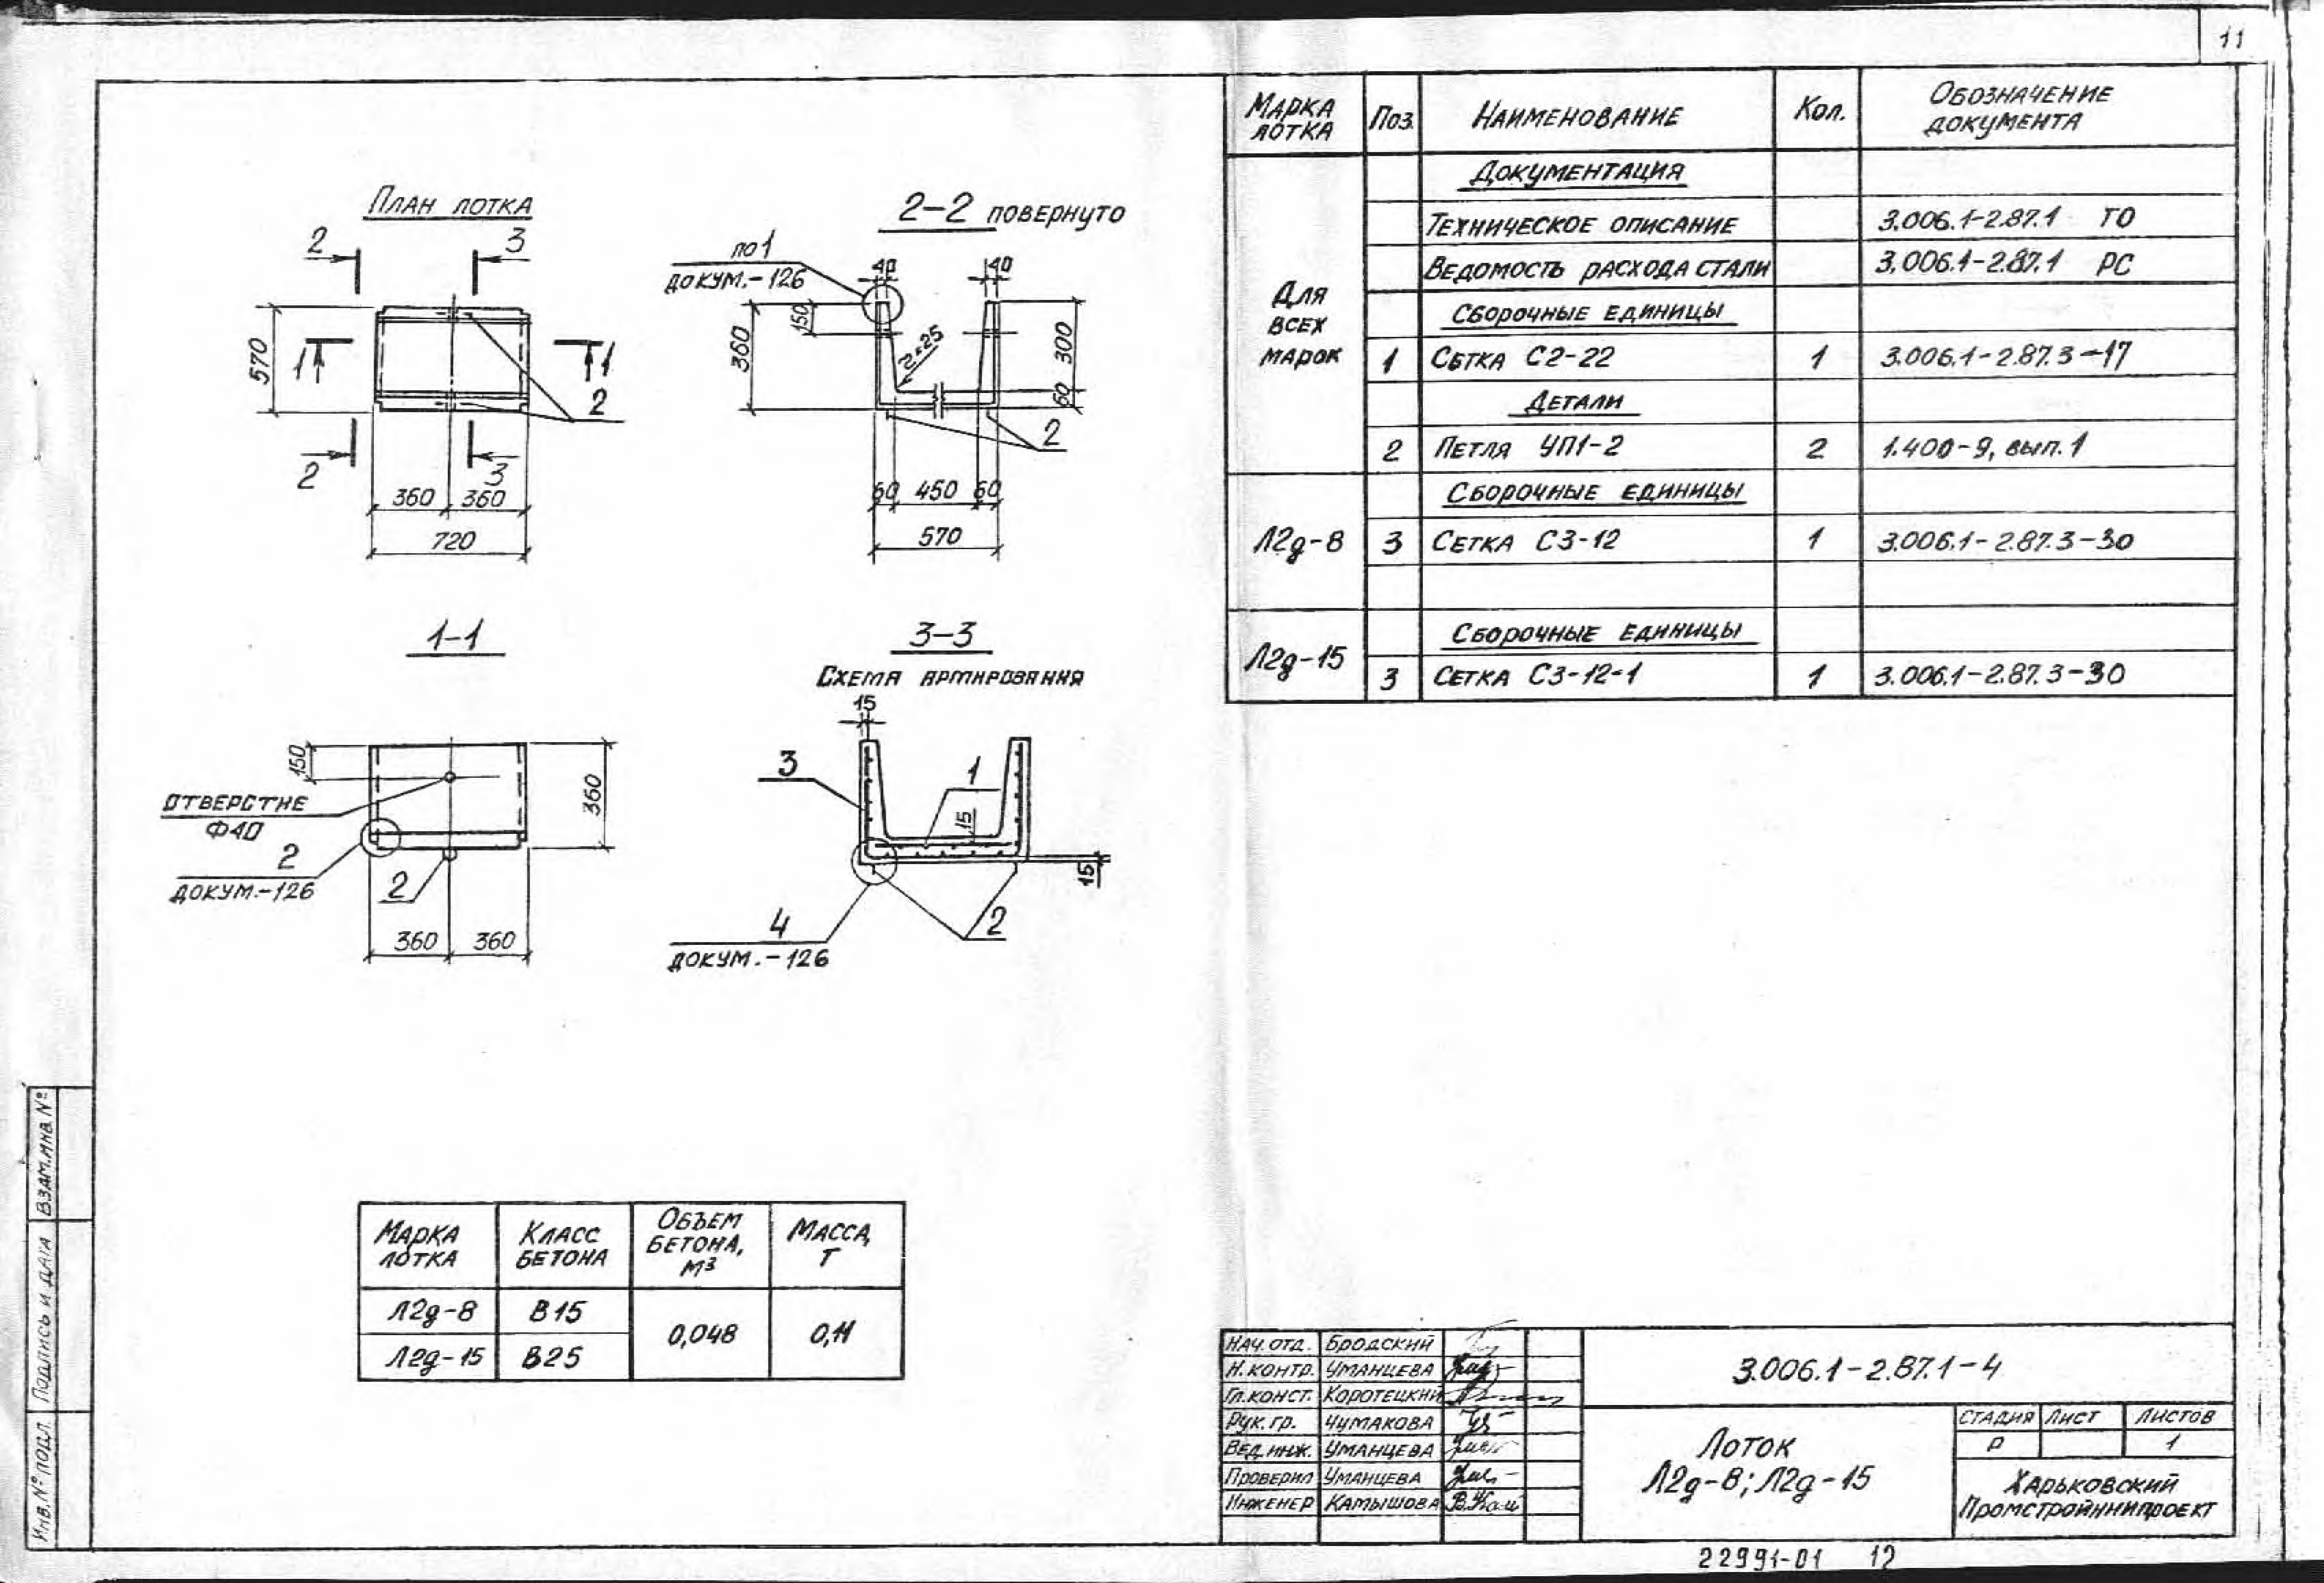 11
План лотка
2
3
570
1
1
2
2
3
360
360
720
2-2 повернуто
по 1
докум.-126
40
40
150
360
r=25
300
60
2
60
450
60
570
1-1
150
Отверстие
Ф40
360
2
докум.-126
2
360
360
3-3
Схема армирования
15
3
1
15
15
4
докум.-126
2
Марка лотка | Поз. | Наименование | Кол. | Обозначение документа
Документация
Техническое описание 3.006.1-2.87.1 ТО
Ведомость расхода стали 3.006.1-2.87.1 РС
Для всех марок
Сборочные единицы
1 Сетка С2-22 1 3.006.1-2.87.3-17
Детали
2 Петля УП1-2 2 1.400-9, вып. 1
Сборочные единицы
Л2д-8 3 Сетка С3-12 1 3.006.1-2.87.3-30
Сборочные единицы
Л2д-15 3 Сетка С3-12-1 1 3.006.1-2.87.3-30
Марка лотка | Класс бетона | Объем бетона, м3 | Масса, т
Л2д-8 В15 0,048 0,11
Л2д-15 В25
Нач. отд. Бродский
Н. контр. Уманцева
Гл. конст. Коротецкий
Рук. гр. Чумакова
Вед. инж. Уманцева
Проверил Уманцева
Инженер Камышова
3.006.1-2.87.1-4
Лоток
Л2д-8; Л2д-15
Стадия Лист Листов
Р 1
Харьковский
Промстройниипроект
22991-01 12
Взам.инв.№
Подпись и дата
Инв.№ подл.